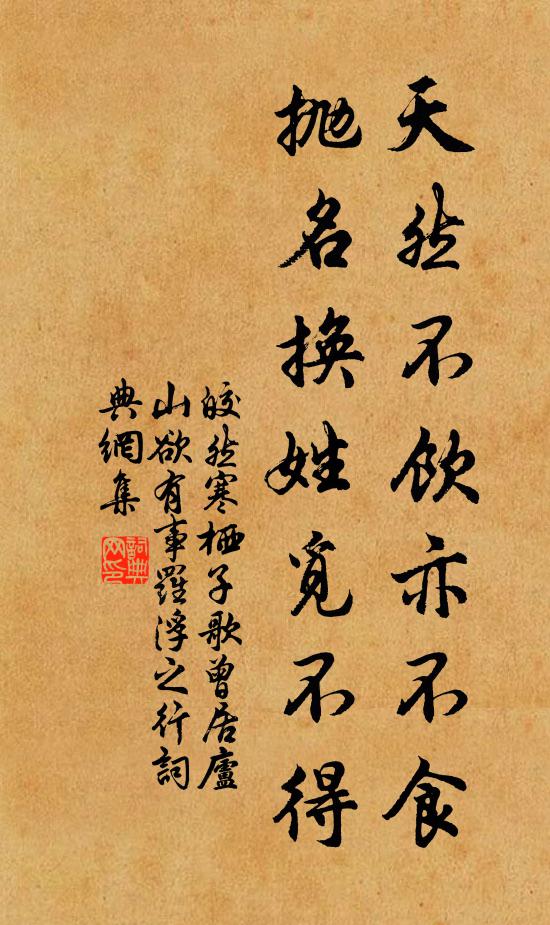 天然不飲亦不食
拋名換姓覓不得
皎然寒栖子歌曾居廬
山欲有事羅浮之行詞
典網集
詞典
网印